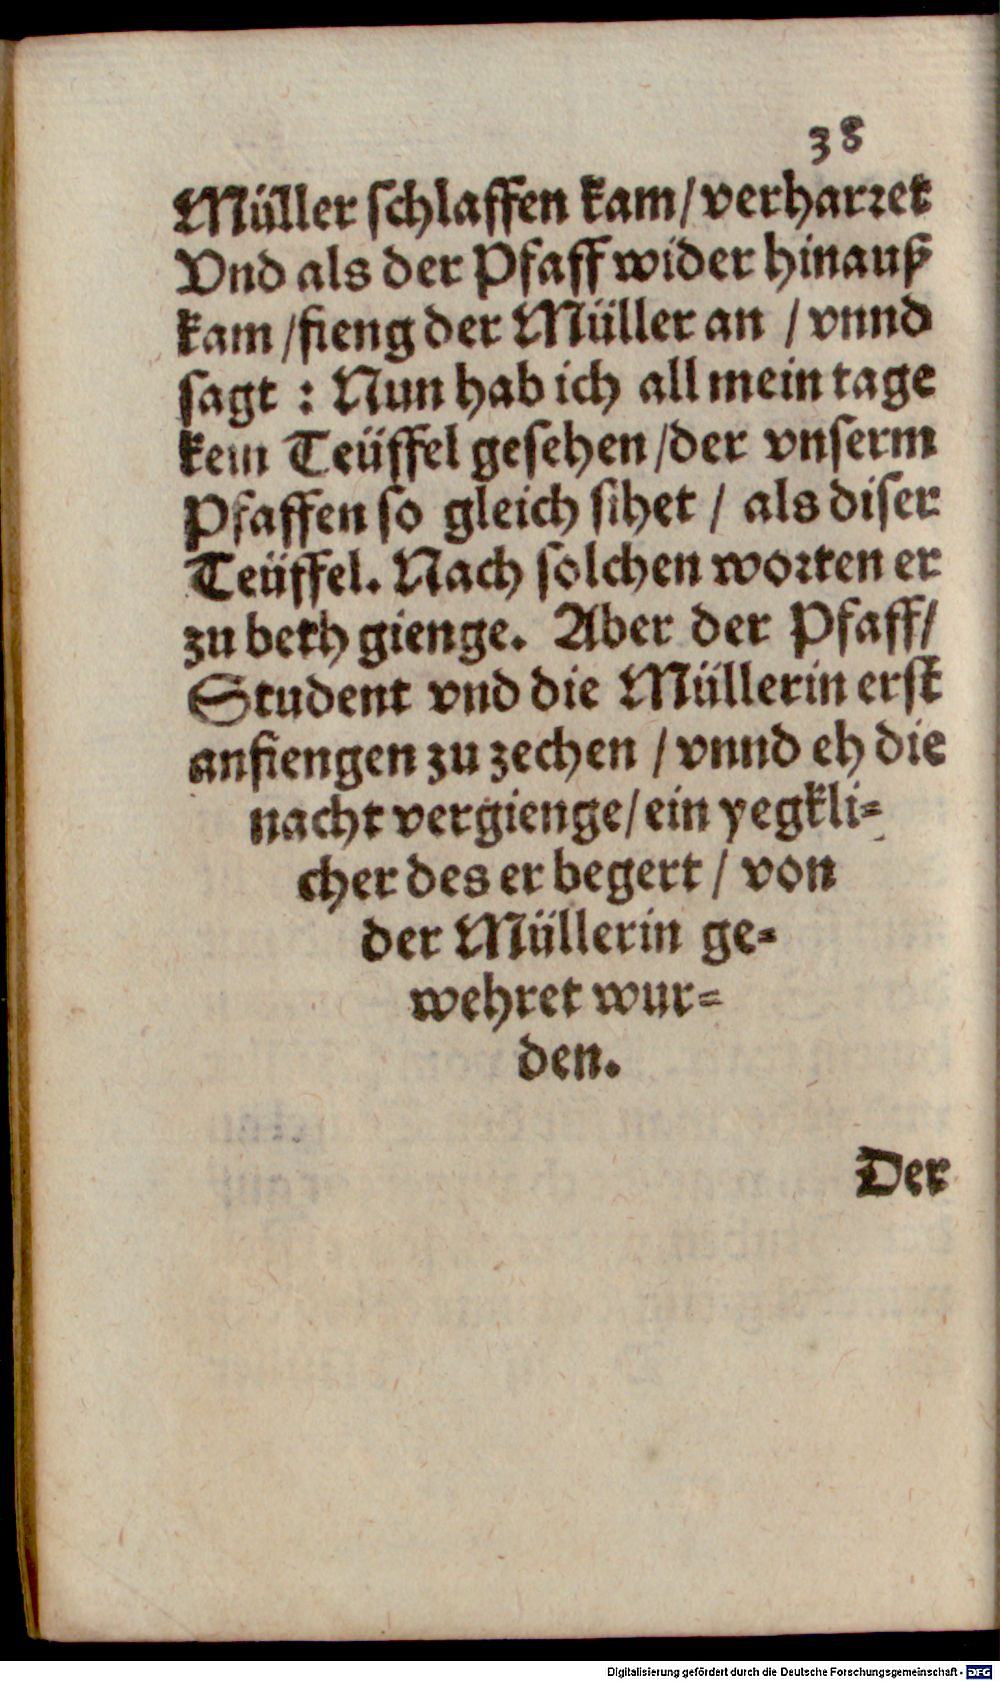 38
Müller schlaffen kam/verharret
Vnd als der Pfaff wider hinauß
kam/fieng der Müller an / vnnd
sagt : Nun hab ich all mein tage
kein Teüffel gesehen/der vnserm
Pfaffen so gleich sihet / als diser
Teüffel. Nach solchen worten er
zu beth gienge. Aber der Pfaff/
Student vnd die Müllerin erst
anfiengen zu zechen / vnnd eh die
nacht vergienge/ein yegkli=
cher des er begert / von
der Müllerin ge=
wehret wur=
den.
Der
Digitalisierung gefördert durch die Deutsche Forschungsgemeinschaft - DFG